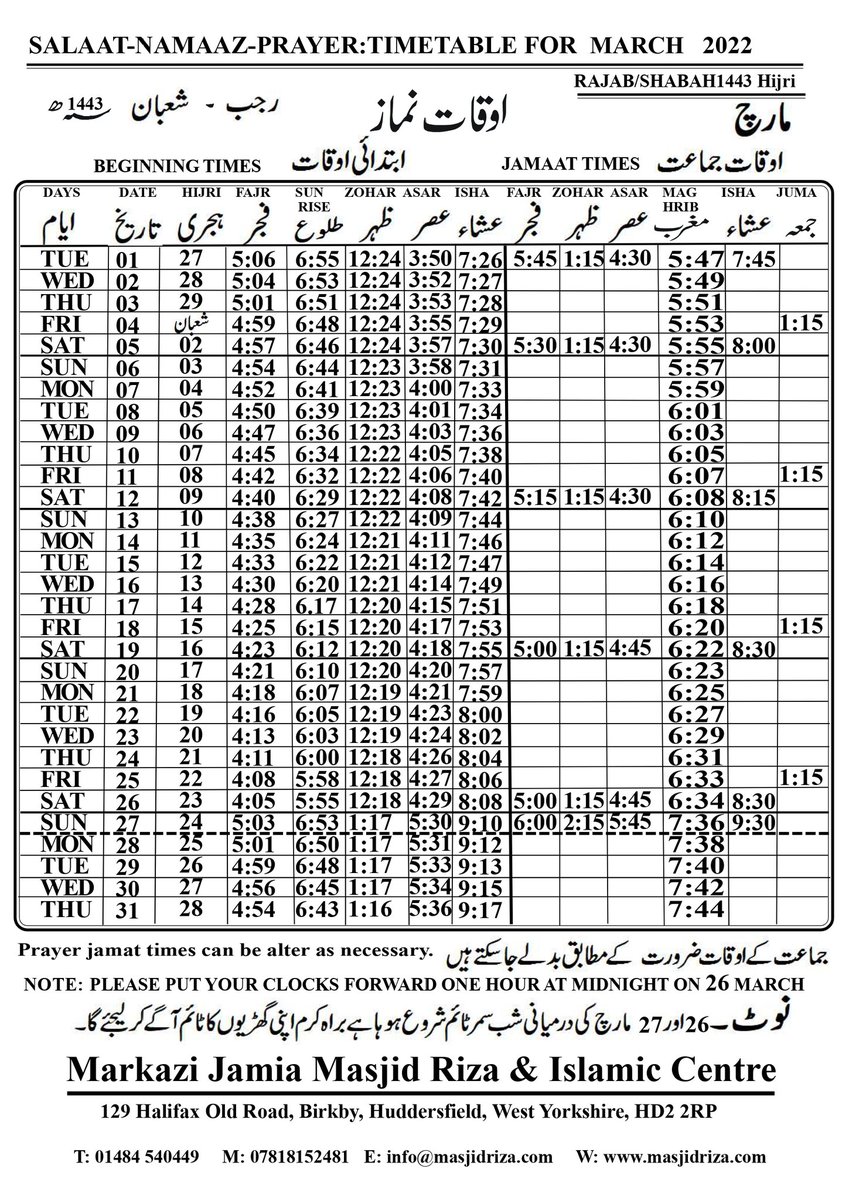 SALAAT-NAMAAZ-PRAYER:TIMETABLE FOR MARCH 2022
RAJAB/SHABAH1443 Hijri
مارچ اوقات نماز رجب - شعبان 1443ھ
BEGINNING TIMES ابتدائی اوقات JAMAAT TIMES اوقات جماعت
DAYS DATE HIJRI FAJR SUN RISE ZOHAR ASAR ISHA FAJR ZOHAR ASAR MAG HRIB ISHA JUMA
ایام تاریخ ہجری فجر طلوع ظہر عصر عشاء فجر ظہر عصر مغرب عشاء جمعہ
TUE 01 27 5:06 6:55 12:24 3:50 7:26 5:45 1:15 4:30 5:47 7:45
WED 02 28 5:04 6:53 12:24 3:52 7:27 5:49
THU 03 29 5:01 6:51 12:24 3:53 7:28 5:51
FRI 04 شعبان 4:59 6:48 12:24 3:55 7:29 5:53 1:15
SAT 05 02 4:57 6:46 12:24 3:57 7:30 5:30 1:15 4:30 5:55 8:00
SUN 06 03 4:54 6:44 12:23 3:58 7:31 5:57
MON 07 04 4:52 6:41 12:23 4:00 7:33 5:59
TUE 08 05 4:50 6:39 12:23 4:01 7:34 6:01
WED 09 06 4:47 6:36 12:23 4:03 7:36 6:03
THU 10 07 4:45 6:34 12:22 4:05 7:38 6:05
FRI 11 08 4:42 6:32 12:22 4:06 7:40 6:07 1:15
SAT 12 09 4:40 6:29 12:22 4:08 7:42 5:15 1:15 4:30 6:08 8:15
SUN 13 10 4:38 6:27 12:22 4:09 7:44 6:10
MON 14 11 4:35 6:24 12:21 4:11 7:46 6:12
TUE 15 12 4:33 6:22 12:21 4:12 7:47 6:14
WED 16 13 4:30 6:20 12:21 4:14 7:49 6:16
THU 17 14 4:28 6.17 12:20 4:15 7:51 6:18
FRI 18 15 4:25 6:15 12:20 4:17 7:53 6:20 1:15
SAT 19 16 4:23 6:12 12:20 4:18 7:55 5:00 1:15 4:45 6:22 8:30
SUN 20 17 4:21 6:10 12:20 4:20 7:57 6:23
MON 21 18 4:18 6:07 12:19 4:21 7:59 6:25
TUE 22 19 4:16 6:05 12:19 4:23 8:00 6:27
WED 23 20 4:13 6:03 12:19 4:24 8:02 6:29
THU 24 21 4:11 6:00 12:18 4:26 8:04 6:31
FRI 25 22 4:08 5:58 12:18 4:27 8:06 6:33 1:15
SAT 26 23 4:05 5:55 12:18 4:29 8:08 5:00 1:15 4:45 6:34 8:30
SUN 27 24 5:03 6:53 1:17 5:30 9:10 6:00 2:15 5:45 7:36 9:30
MON 28 25 5:01 6:50 1:17 5:31 9:12 7:38
TUE 29 26 4:59 6:48 1:17 5:33 9:13 7:40
WED 30 27 4:56 6:45 1:17 5:34 9:15 7:42
THU 31 28 4:54 6:43 1:16 5:36 9:17 7:44
Prayer jamat times can be alter as necessary. جماعت کے اوقات ضرورت کے مطابق بدلے جاسکتے ہیں
NOTE: PLEASE PUT YOUR CLOCKS FORWARD ONE HOUR AT MIDNIGHT ON 26 MARCH
نوٹ۔ 26 اور 27 مارچ کی درمیانی شب سمر ٹائم شروع ہو رہا ہے براہ کرم اپنی گھڑیوں کا ٹائم آگے کر لیجئے گا۔
Markazi Jamia Masjid Riza & Islamic Centre
129 Halifax Old Road, Birkby, Huddersfield, West Yorkshire, HD2 2RP
T: 01484 540449 M: 07818152481 E: info@masjidriza.com W: www.masjidriza.com